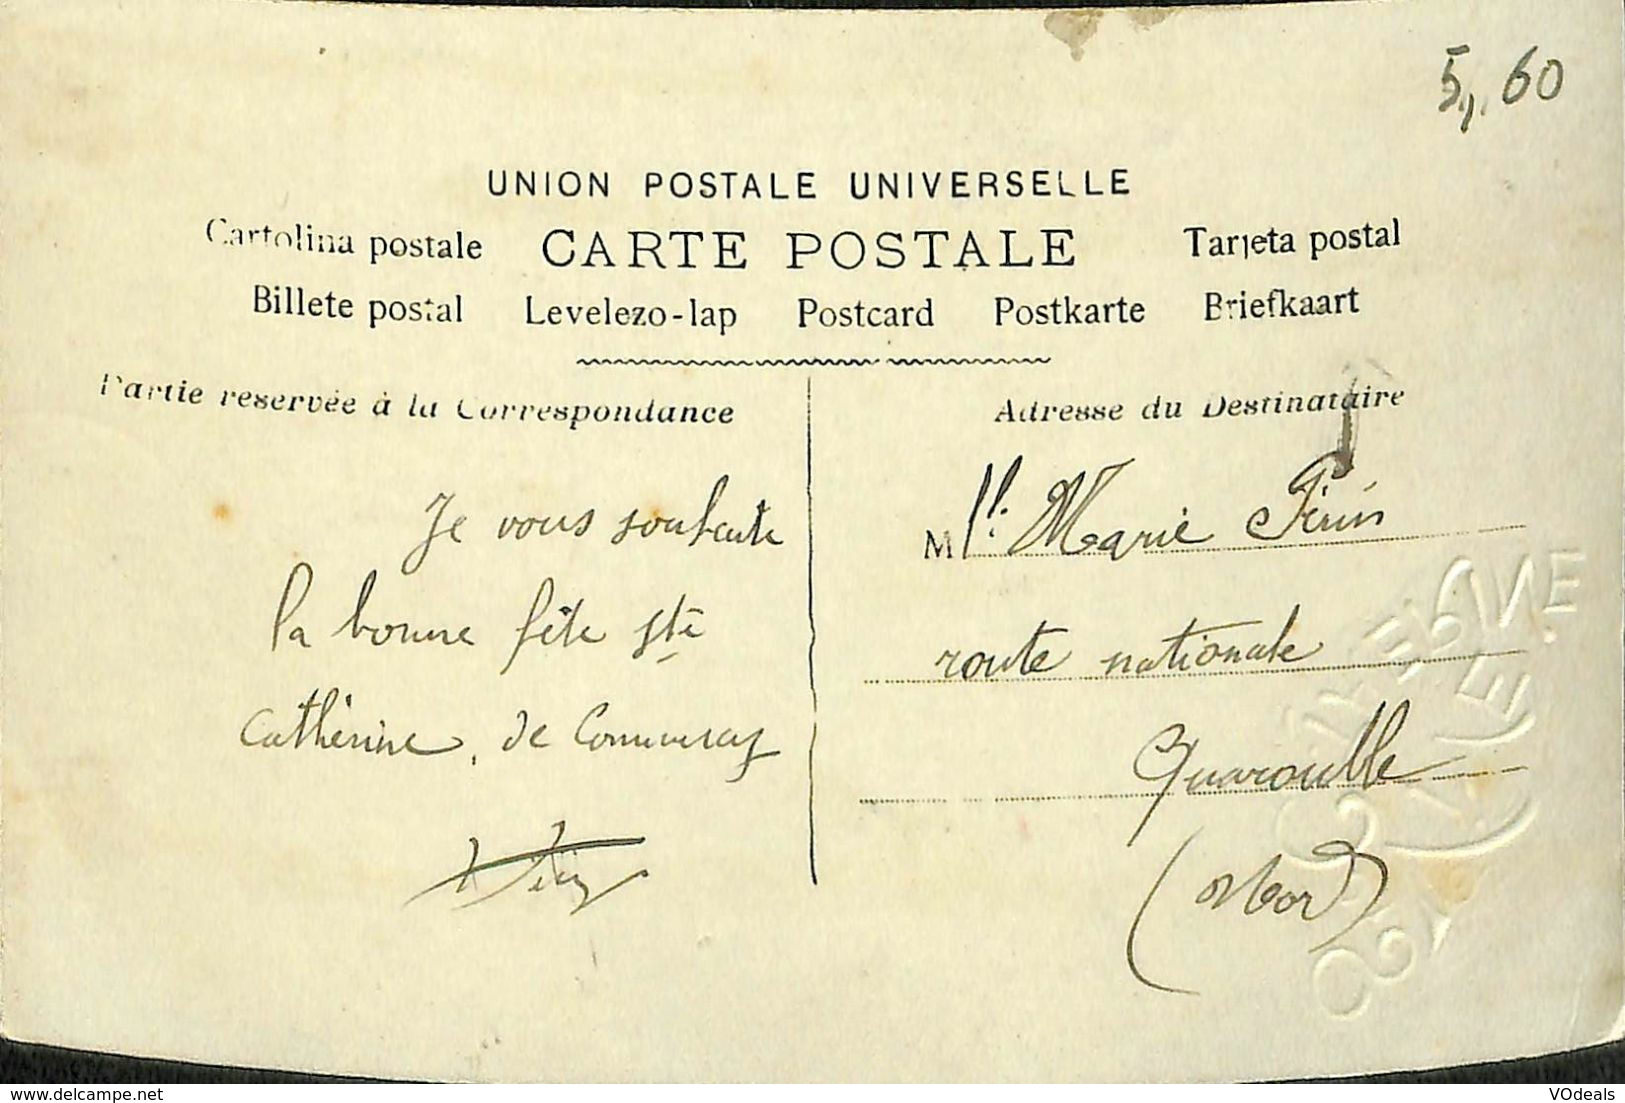 5,60
UNION POSTALE UNIVERSELLE
Cartolina postale CARTE POSTALE Tarjeta postal
Billete postal Levelezo-lap Postcard Postkarte Briefkaart
Partie reservée à la Correspondance
Je vous souhaite
la bonne fête Ste
Catherine, de
Adresse du Destinataire
Mlle Marie
route nationale
Quarouble
(Nord)
VOdeals